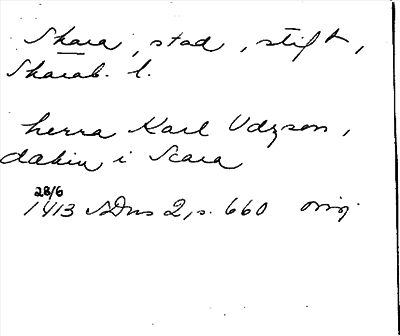 Skara, stad, stift,
Skarab. l.
herra Karl Vdzson,
däkin i Scara
28/6
1413 SDns 2, s. 660 orig.